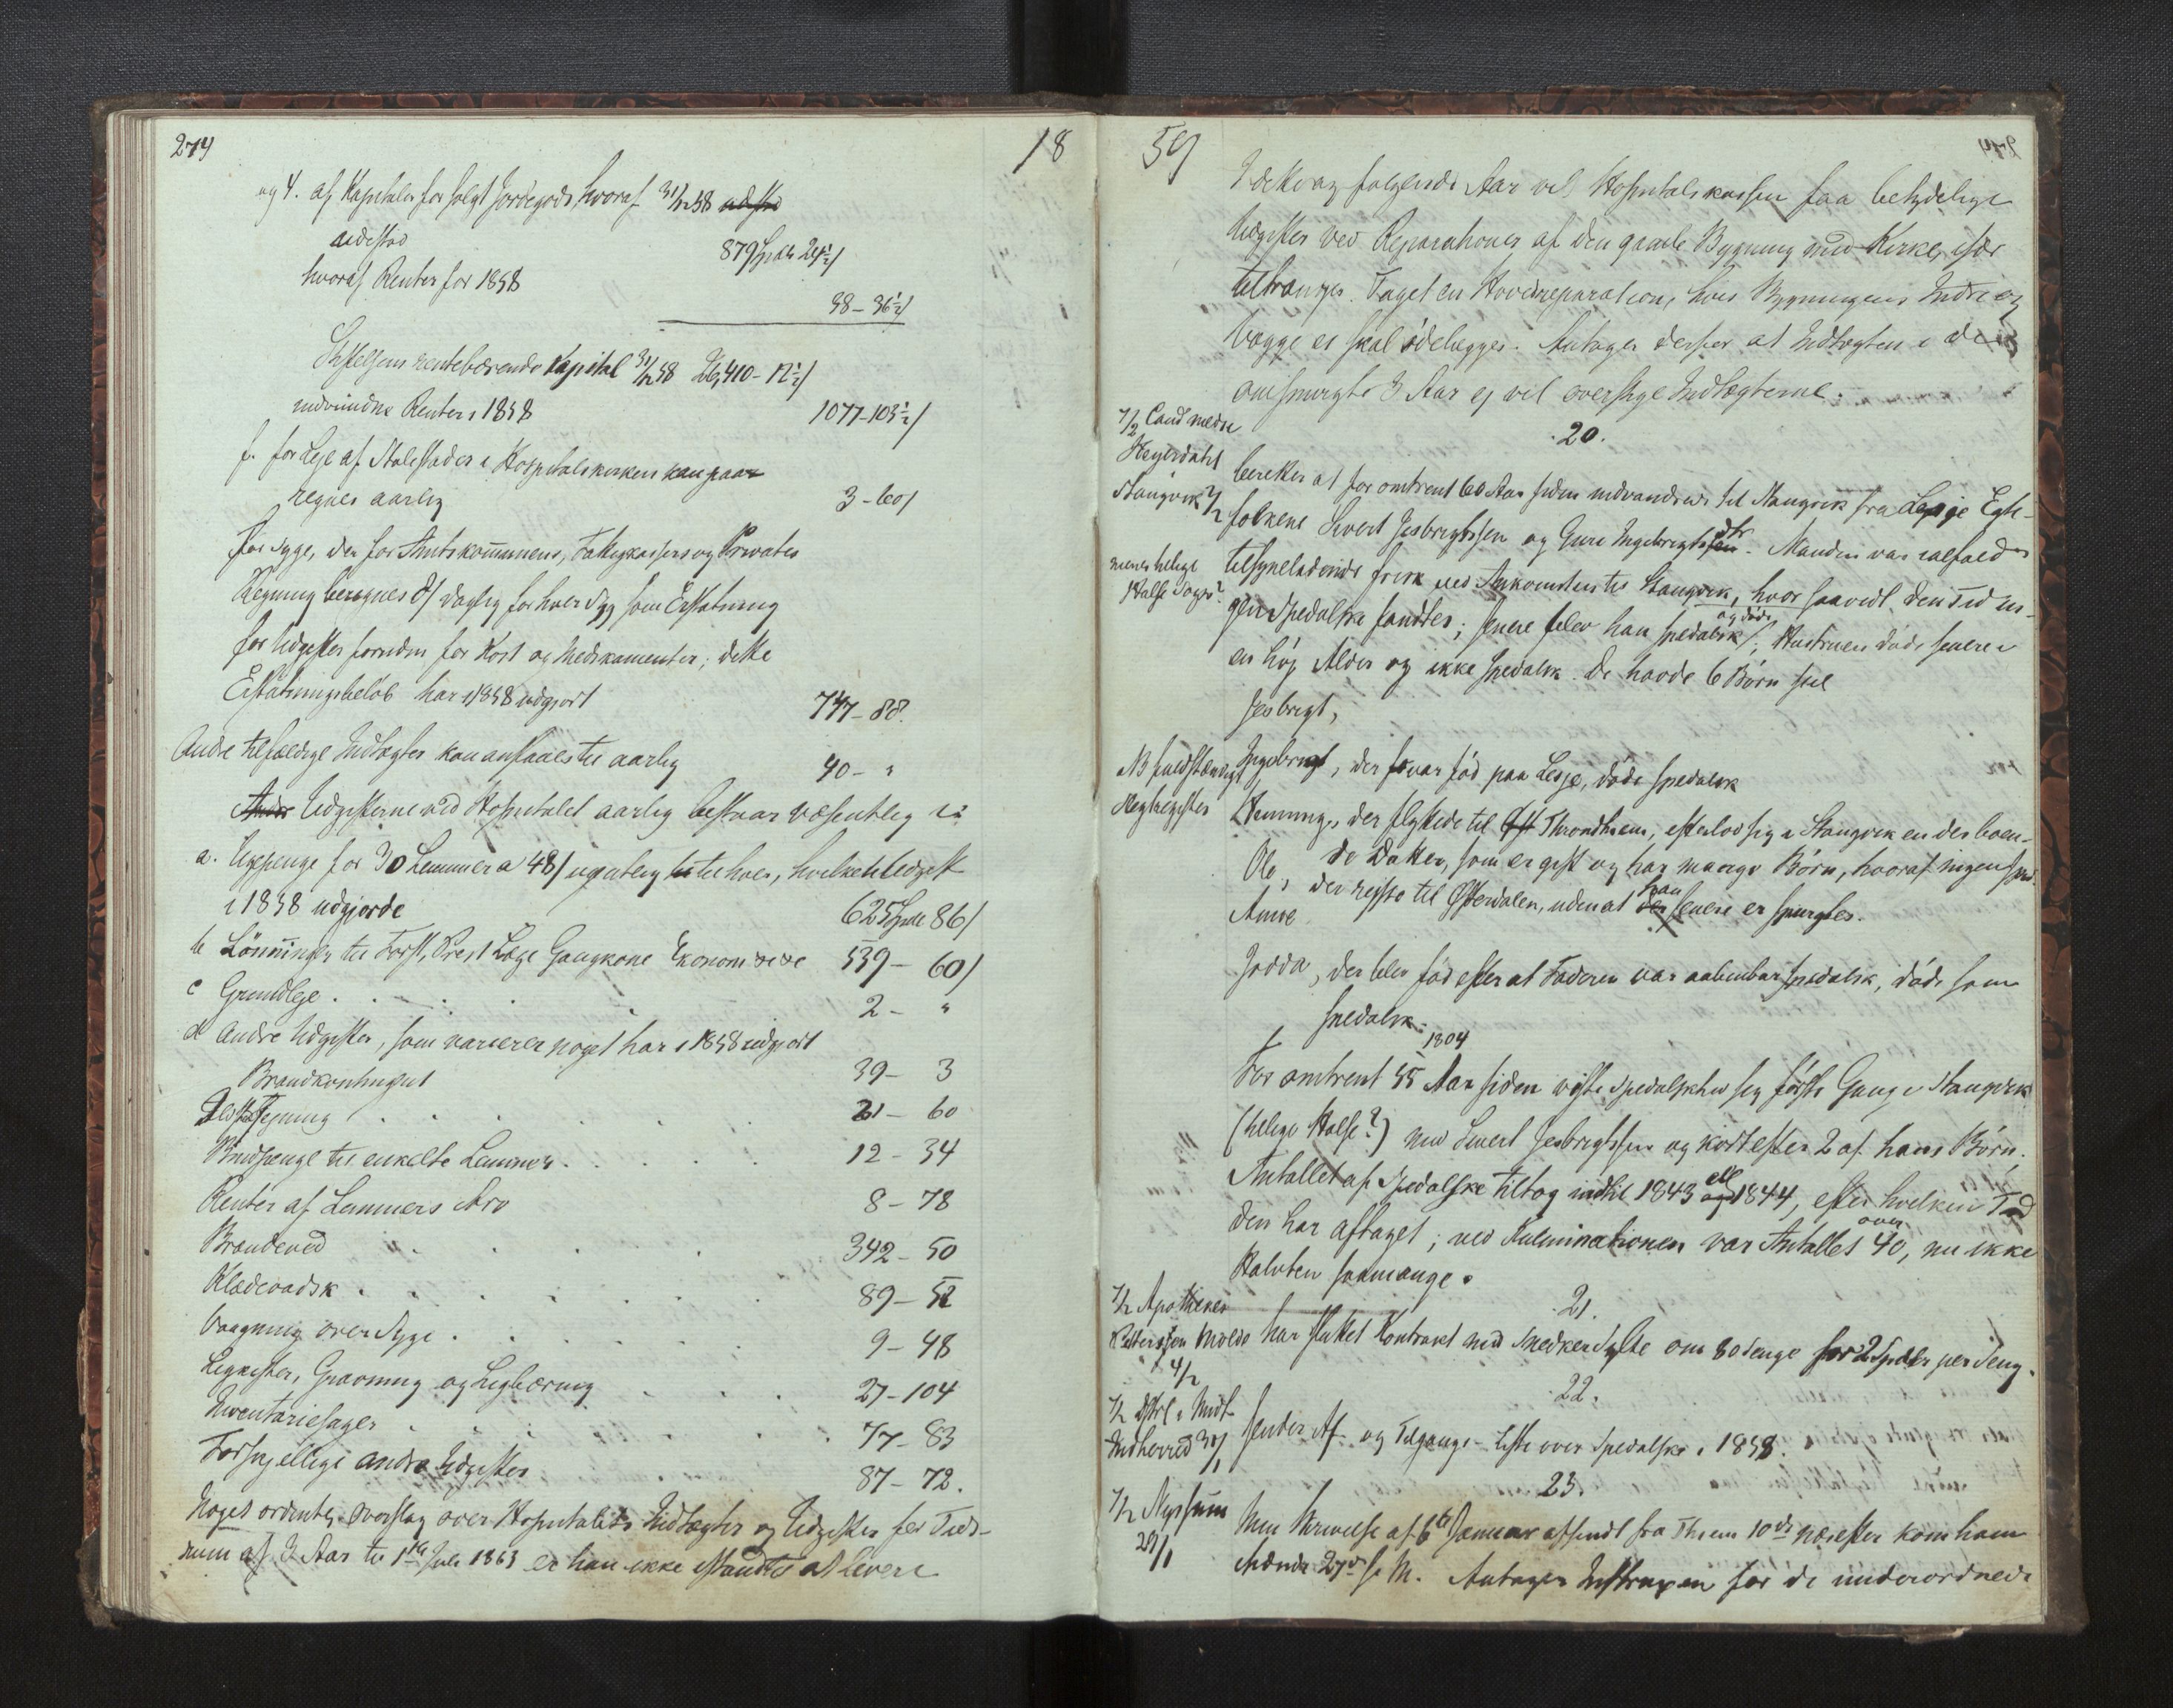 274
18
og 4. af Kapitaler for solgt Jordegods, hvoraf 31/12 58 udstod
udestod 879 Spdlr 24½ s
hvoraf Renter for 1858 38 - 36½ s
Stiftelsens rentebærende Kapital 31/12 58 26,410 - 12½ s
indvundne Renter i 1858 1077 - 103½ s
f. for Leje af Stolestader i Hospitalskirken kan paa-
regnes aarlig 3 - 60 s
For Syge, der for Amtskommunens, Fattigkassens og Privates
Regning beregnes 8 s daglig for hver Syg som Erstatning
for Udgifter foruden for Kost og Medikamenter; dette
Erstatningsbeløb har i 1858 udgjort 747 - 88.
Andre tilfældige Indtægter kan ansaaes til aarlig 40 - "
Andre Udgifterne ved Hospitalet aarlig bestaar væsentlig i:
a. Ugepenge for 30 Lemmer a 48 s ugentlig til hver, hvilken Udgift
i 1858 udgjorde 625 Spdlr 86 s
b Lønninger til Forst, Prest Læge Gangkone Ekonom &c &c 539 - 60 s
c Grundleje . . . 2 - "
d Andre Udgifter, som varierer noget har i 1858 udgjort
Brandkontingent 39 - 3
21 - 60
til enkelte Lemmer . . . 12 - 34
Renter af Lemmers Arv 8 - 78
Brændeved . . . 342 - 50
Klædevadsk . . . 89 - 52
Vaagning over Syge . . . 9 - 48
Ligkister, Gravning og Ligbæring . . . 27 - 104
Inventariesager . . . 77 - 83
Forskjellige andre Udgifter 87 - 72.
Noget ordentlig Overslag over Hospitalets Indtægter og Udgifter for Tids-
rum af 3 Aar til 1ste Juli 1863 er han ikke istandtil at levere
59
I dette og følgende Aar vil Hospitalskassen faa betydelige
Udgifter ved Reparationer af den gamle Bygning med Kirke, især
tiltrænges Taget en Hovedreparation, hvis Bygningens Indre og
Vægge ei skal ødelægges. Antager derfor at Indtægten i de
omspurgte 3 Aar ej vil overstige Indtægterne.
20.
7/2 Cand med
Heyerdahl
Stangvik 2/2
beretter at for omtrent 60 Aar siden indvandrede til Stangvik fra Lesje Egte-
folkene Sivert Jesbrigtssen og Guri Ingebrigtsdtr. Manden var ialfald
menes helige
Halse Sogn?
tilsyneladende frisk ved Ankomsten til Stangvik, hvor saavidt den Tid in-
gen Spedalske fandtes; senere blev han spedalsk og døde; Hustruen døde senere i
en høj Alder og ikke spedalsk. De havde 6 Børn
Jesbrigt,
NB fuldstændigt
Slegtregister
Ingebrigt, der var fød paa Lesje, døde spedalsk
Hemming, der flyttede til Throndhiem, efterlod sig i Stangvik en der boen-
de Datter, som er gift og har mange Børn, hvoraf ingen sped.
Ole, der rejste til Østerdalen, uden at han senere er spurgt.
Anne
Jodda, der blev fød efter at Faderen var aabenbar spedalsk, døde som
spedalsk.
1804
For omtrent 55 Aar siden viste Spedalskhed sig første Gang i Stangvik
(helige Halse?) med Sivert Jesbrigtssen og kort efter 2 af hans Børn.
Antallet af Spedalske tiltog indtil 1843 ell 1844, efter hvilken Tid
den har aftaget; ved Kulminationen var Antallet over 40, nu ikke
Halvten saamange.
21.
7/2 Apotheker
Petterssen Molde
4/2
har sluttet Kontrakt med Snedker Sylte om 80 Senge for 2 Spdlr per Seng.
22.
7/2 Distrl i Midt
Indherred 31/1
sender Af- og Tilgangs-Liste over Spedalske i 1858.
23.
7/2
29/1
Min Skrivelse af 6te Januar afsendt fra Thiem 10de næstefter kom ham
ihænde 27de s. M. Antager Instruxen for de underordnede